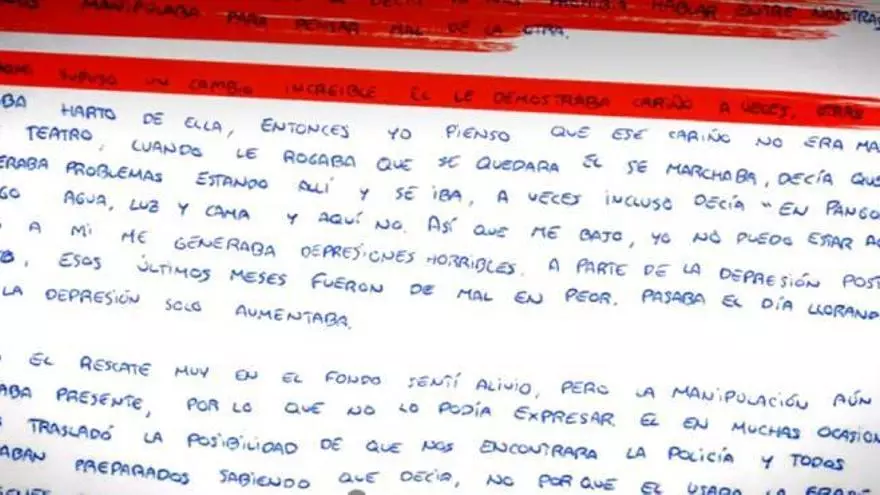 EL DECÍA PROHIBÍA HABLAR ENTRE NOSOTRAS
MANIPULABA PARA PENSAR MAL DE LA OTRA.
SUPUSO UN CAMBIO INCREIBLE EL LE DEMOSTRABA CARIÑO A VECES, OTRAS
BA HARTO DE ELLA, ENTONCES YO PIENSO QUE ESE CARIÑO NO ERA MA
TEATRO, CUANDO LE ROGABA QUE SE QUEDARA ÉL SE MARCHABA, DECÍA QUE
ERABA PROBLEMAS ESTANDO ALLÍ Y SE IBA, A VECES INCLUSO DECÍA "EN PANGO
GO AGUA, LUZ Y CAMA Y AQUÍ NO. ASÍ QUE ME BAJO, YO NO PUEDO ESTAR A
O A MI ME GENERABA DEPRESIONES HORRIBLES. A PARTE DE LA DEPRESIÓN POST
TO, ESOS ÚLTIMOS MESES FUERON DE MAL EN PEOR. PASABA EL DÍA LLORAND
LA DEPRESIÓN SOLO AUMENTABA.
EL RESCATE MUY EN EL FONDO SENTÍ ALIVIO, PERO LA MANIPULACIÓN AÚN
ABA PRESENTE, POR LO QUE NO LO PODÍA EXPRESAR. EL EN MUCHAS OCASION
S TRASLADÓ LA POSIBILIDAD DE QUE NOS ENCONTRARA LA POLICÍA Y TODOS
ABAN PREPARADOS SABIENDO QUE DECIR, NO POR QUE EL USARA LA FRASE